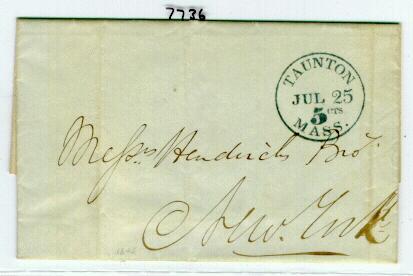 7736
TAUNTON
JUL 25
5 CTS
MASS.
Messrs Hendricks Bro.
New. York